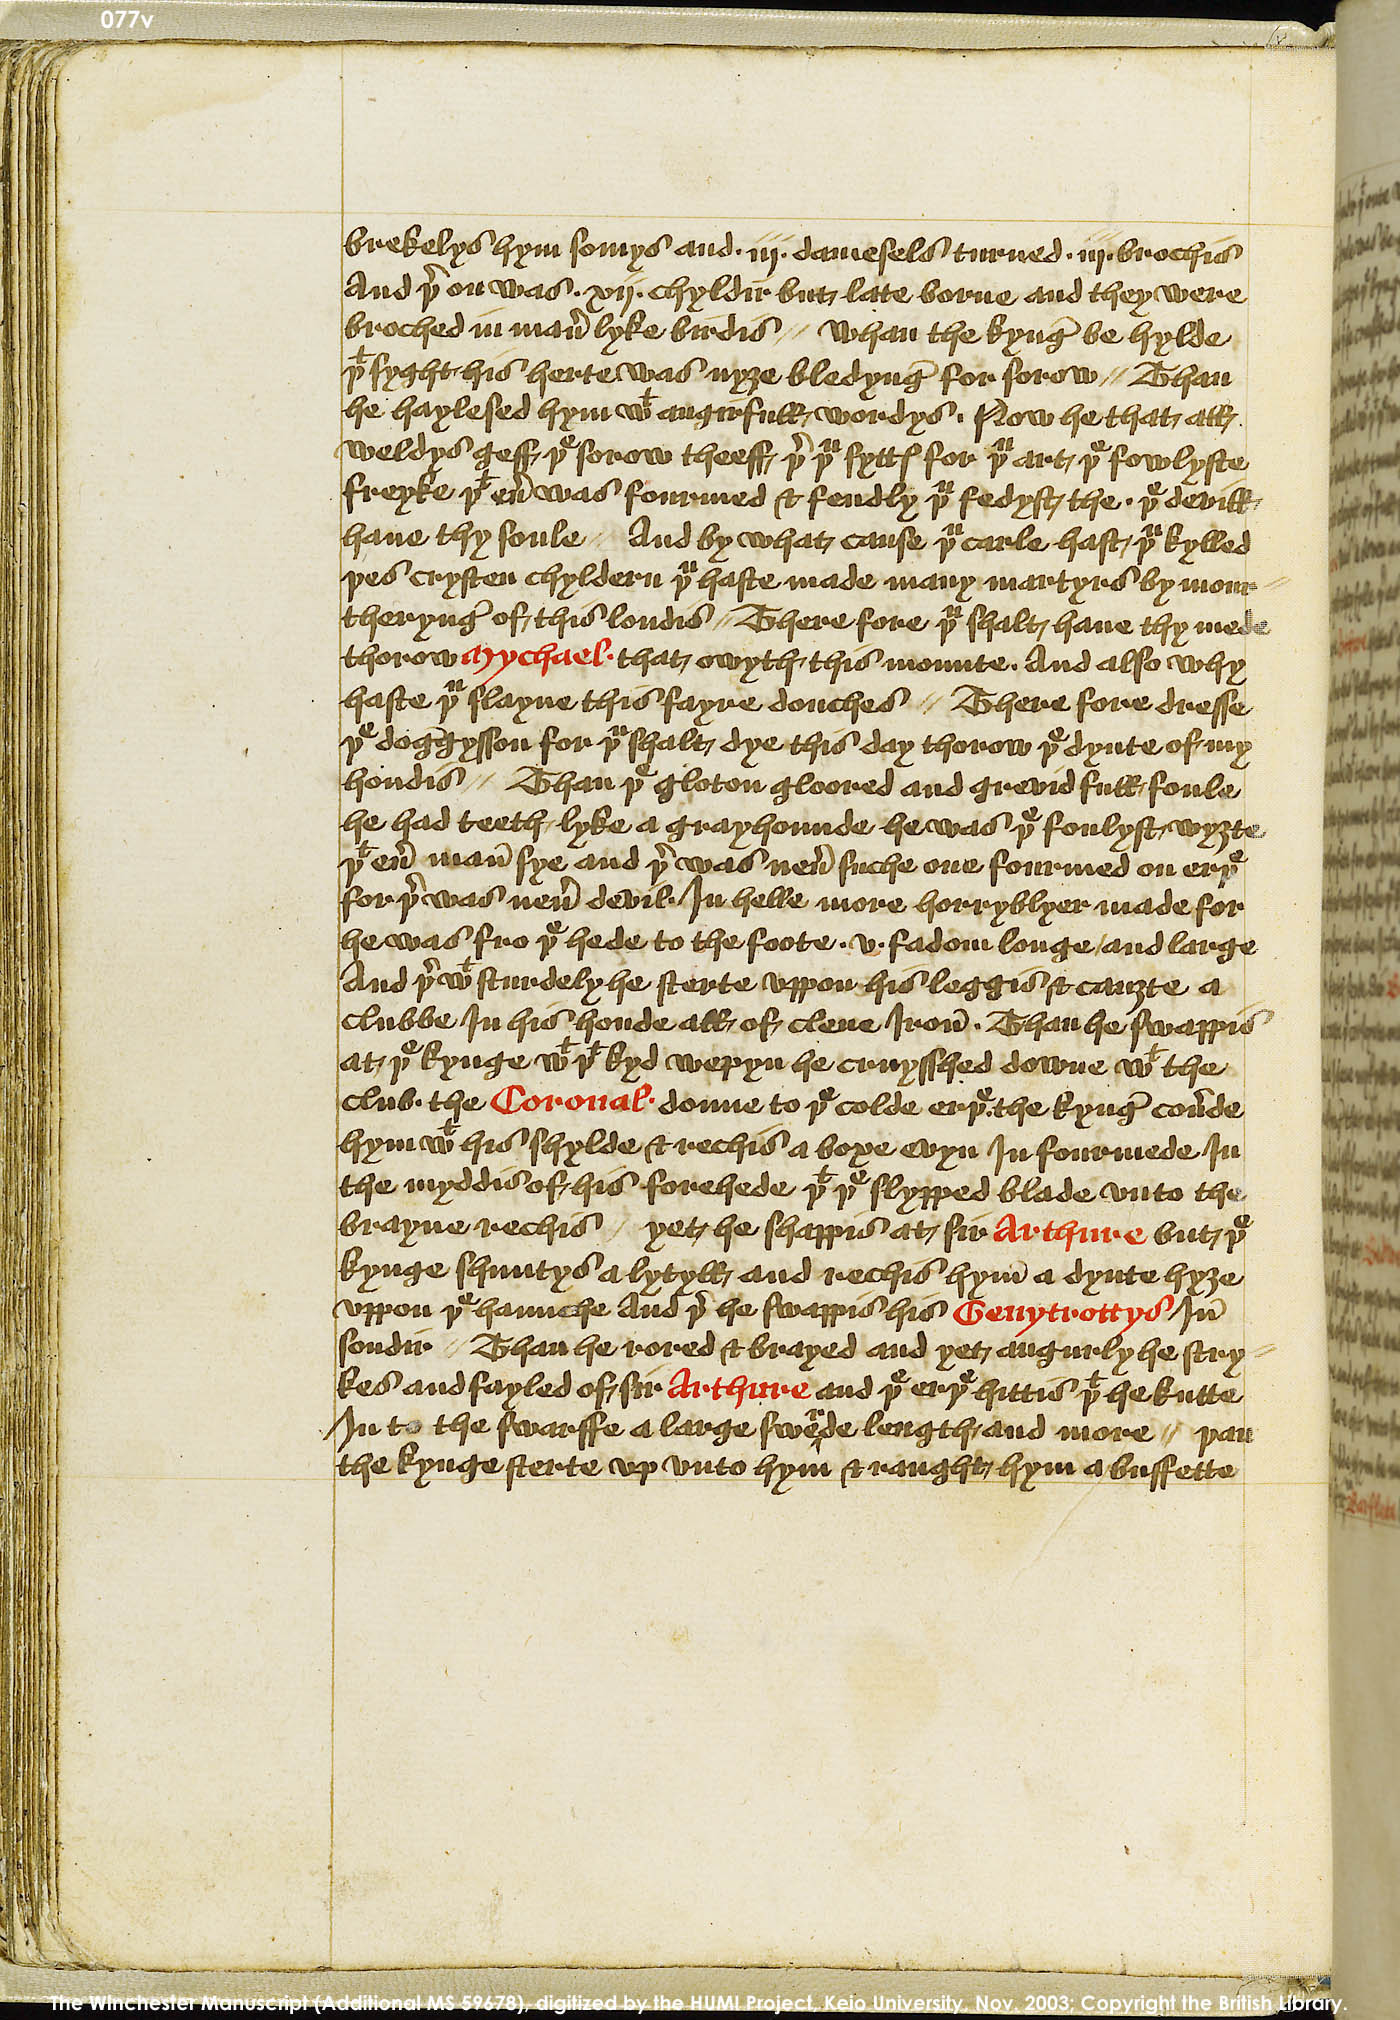 077v
brekelys hym semys and · iij · damesels turned · iij · brochis
And þ͛ on was · xij · chyldir but late borne and they were
broched in man̄ lyke birdis // Whan the kyng̉ be hylde
þᵗ syght his herte was nyȝe bledyng̉ for sorow // Than
he haylesed hym wᵗ angirfull wordys · Now he that all
weldys geff þᵉ sorow theeff þ͛ þᵘ syttꝭ for þᵘ art þᵉ fowlyste
freyke þᵗ eū was fourmed & fendly þᵘ fedyst the · þᵉ devill
haue thy soule // And by what cause þᵘ carle hast þᵘ kylled
þes crysten chyldern þᵘ haste made many martyrs by mour //
theryng̉ of this londis // There fore þᵘ shalt haue thy mede
thorow Mychael · that owyth this mounte · And also why
haste þᵘ slayne this fayre douches // There fore dresse
þᵉ doggysson for þᵘ shalt dye this day thorow þᵉ dynte of my
hondis // Than þᵉ gloton gloored and grevid full foule
he had teeth lyke a grayhounde he was þᵉ foulyst wyȝte
þᵗ eū man̄ sye and þ͛ was neū suche one fourmed on erþᵉ
for þ͛ was neū devil · In helle more horryblyer made for
he was fro þᵉ hede to the foote · v · fadom longe / and large
And þ͛ wᵗ sturdely he sterte vppon his leggis & cauȝte a
clubbe In his honde all of clene Iron̄ · Than he swappis
at þᵉ kynge wᵗ þᵗ kyd wepyn he cruysshed downe wᵗ the
club · the Coronal · doune to þᵉ colde erþᵉ · the kyng̉ coūde
hym wᵗ his shylde & rechis a boxe evyn In fourmede In
the myddis of his forehede þᵗ þᵉ slypped blade vnto the
brayne rechis / yet he shappis at sir Arthure but þᵉ
kynge shuntys a lytyll and rechis hym̄ a dynte hyȝe
vppon þᵉ haunche And þ͛ he swappis his Genytrottys In̄
sondir // Than he rored & brayed and yet angurly he stry //
kes and fayled of sir Arthure and þᵉ erþᵉ hittis þᵗ he kutte
In to the swarffe a large swerde length and more // þan
the kynge sterte vp vnto hym & raught hym a buffette
The Winchester Manuscript (Additional MS 59678), digitized by the HUMI Project, Keio University, Nov, 2003; Copyright the British Library.